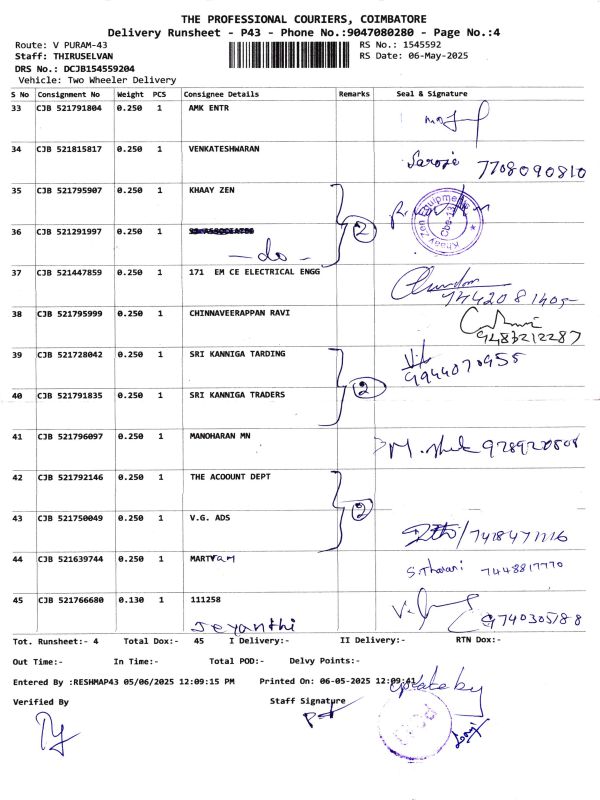 THE PROFESSIONAL COURIERS, COIMBATORE
Delivery Runsheet - P43 - Phone No.:9047080280 - Page No.:4
Route: V PURAM-43 RS No.: 1545592
Staff: THIRUSELVAN RS Date: 06-May-2025
DRS No.: DCJB154559204
Vehicle: Two Wheeler Delivery
S No Consignment No Weight PCS Consignee Details Remarks Seal & Signature
33 CJB 521791804 0.250 1 AMK ENTR
34 CJB 521815817 0.250 1 VENKATESHWARAN
Saroje 7708090810
35 CJB 521795907 0.250 1 KHAAY ZEN
Khaay Zen Equipments
36 CJB 521291997 0.250 1 2
- do -
37 CJB 521447859 0.250 1 171 EM CE ELECTRICAL ENGG
38 CJB 521795999 0.250 1 CHINNAVEERAPPAN RAVI
9483212287
39 CJB 521728042 0.250 1 SRI KANNIGA TARDING
9944070955
40 CJB 521791835 0.250 1 SRI KANNIGA TRADERS 2
41 CJB 521796097 0.250 1 MANOHARAN MN
42 CJB 521792146 0.250 1 THE ACOOUNT DEPT
43 CJB 521750049 0.250 1 V.G. ADS 2
44 CJB 521639744 0.250 1 MARTYram
7448817770
45 CJB 521766680 0.130 1 111258
Jeyanthi 9740305788
Tot. Runsheet:- 4 Total Dox:- 45 I Delivery:- II Delivery:- RTN Dox:-
Out Time:- In Time:- Total POD:- Delvy Points:-
Entered By :RESHMAP43 05/06/2025 12:09:15 PM Printed On: 06-05-2025 12:09:41
Verified By Staff Signature